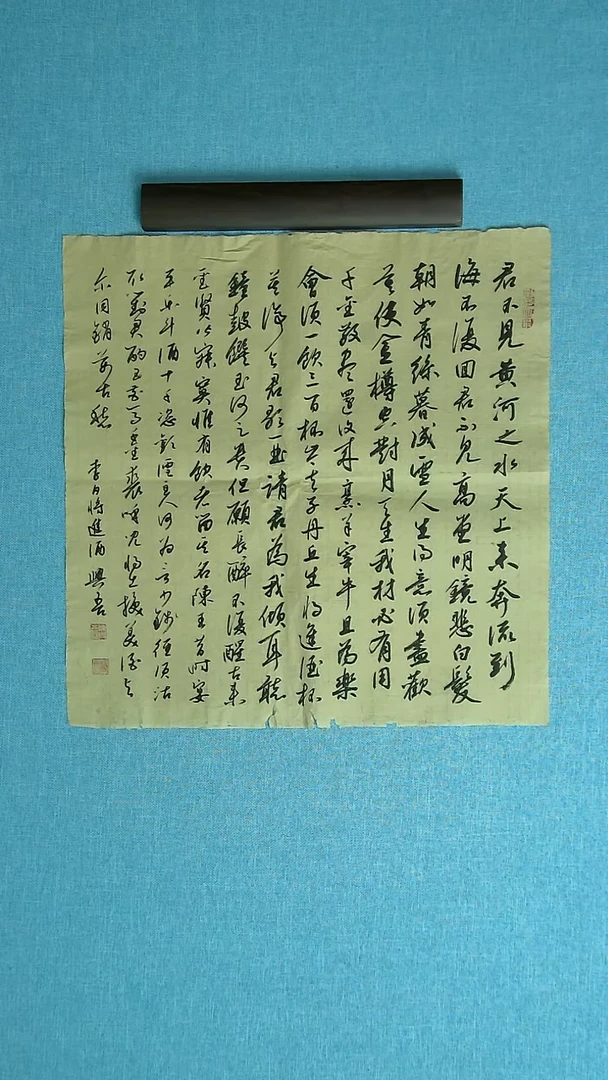 君不見黃河之水天上來奔流到
海不復回君不見高堂明鏡悲白髮
朝如青絲暮成雪人生得意須盡歡
莫使金樽空對月天生我材必有用
千金散盡還復來烹羊宰牛且為樂
會須一飲三百杯岑夫子丹丘生將進酒杯
莫停與君歌一曲請君為我傾耳聽
鐘鼓饌玉何足貴但願長醉不復醒古來
聖賢皆寂寞惟有飲者留其名陳王昔時宴
平樂斗酒十千恣歡謔主人何為言少錢徑須沽
取對君酌五花馬千金裘呼兒將出換美酒與
爾同銷萬古愁 李白將進酒 興吾